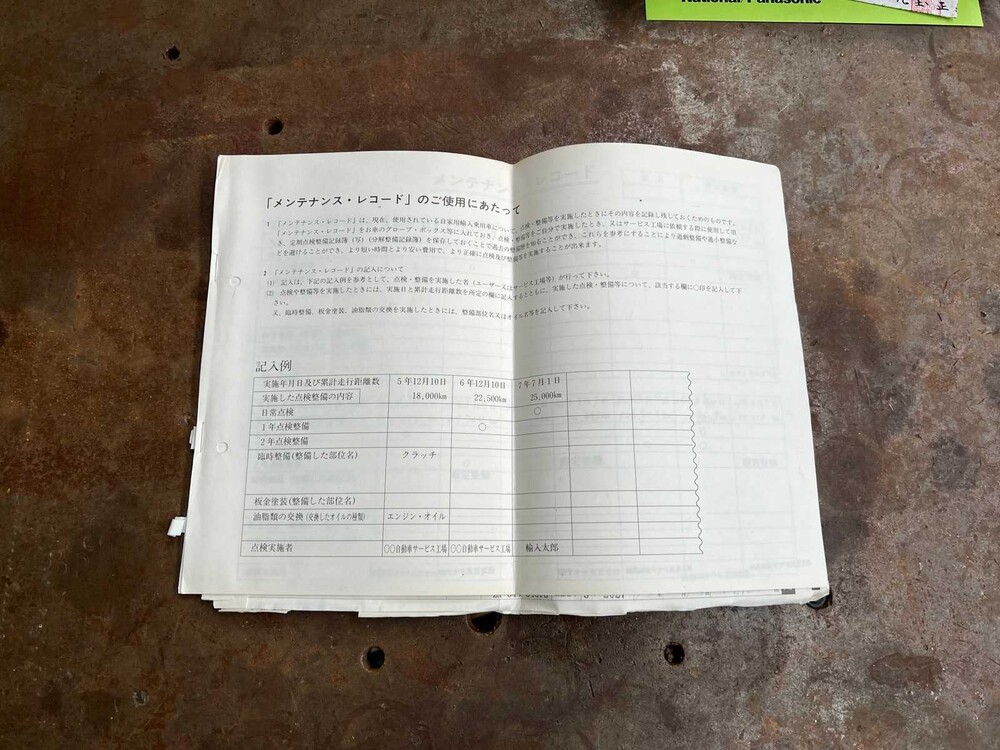 National/Panasonic
「メンテナンス・レコード」のご使用にあたって
1 「メンテナンス・レコード」は、現在、使用されている自家用輸入乗用車について、点検・整備等を実施したときにその内容を記録し残しておくためのものです。
「メンテナンス・レコード」をお車のグローブ・ボックス等に入れておき、点検・整備等をご自分で実施したとき、又はサービス工場に依頼する際に使用して頂
き、定期点検整備記録簿（写）（分解整備記録簿）を保存しておくことで過去の整備歴を知ることができ、これらを参考にすることにより過剰整備や過小整備な
どを避けることができ、より短い時間とより安い費用で、より正確に点検及び整備等を実施することが出来ます。
2 「メンテナンス・レコード」の記入について
(1) 記入は、下記の記入例を参考として、点検・整備を実施した者（ユーザー又はサービス工場等）が行って下さい。
(2) 点検や整備等を実施したときには、実施日と累計走行距離数を所定の欄に記入するとともに、実施した点検・整備等について、該当する欄に○印を記入して下
さい。
又、臨時整備、板金塗装、油脂類の交換を実施したときには、整備部位名又はオイル名等を記入して下さい。
記入例
実施年月日及び累計走行距離数 5年12月10日 6年12月10日 7年7月1日
実施した点検整備の内容 18,000km 22,500km 25,000km
日常点検 ○
1年点検整備 ○
2年点検整備
臨時整備(整備した部位名) クラッチ
板金塗装(整備した部位名)
油脂類の交換(交換したオイルの種類) エンジン・オイル
点検実施者 ○○自動車サービス工場 ○○自動車サービス工場 輸入太郎